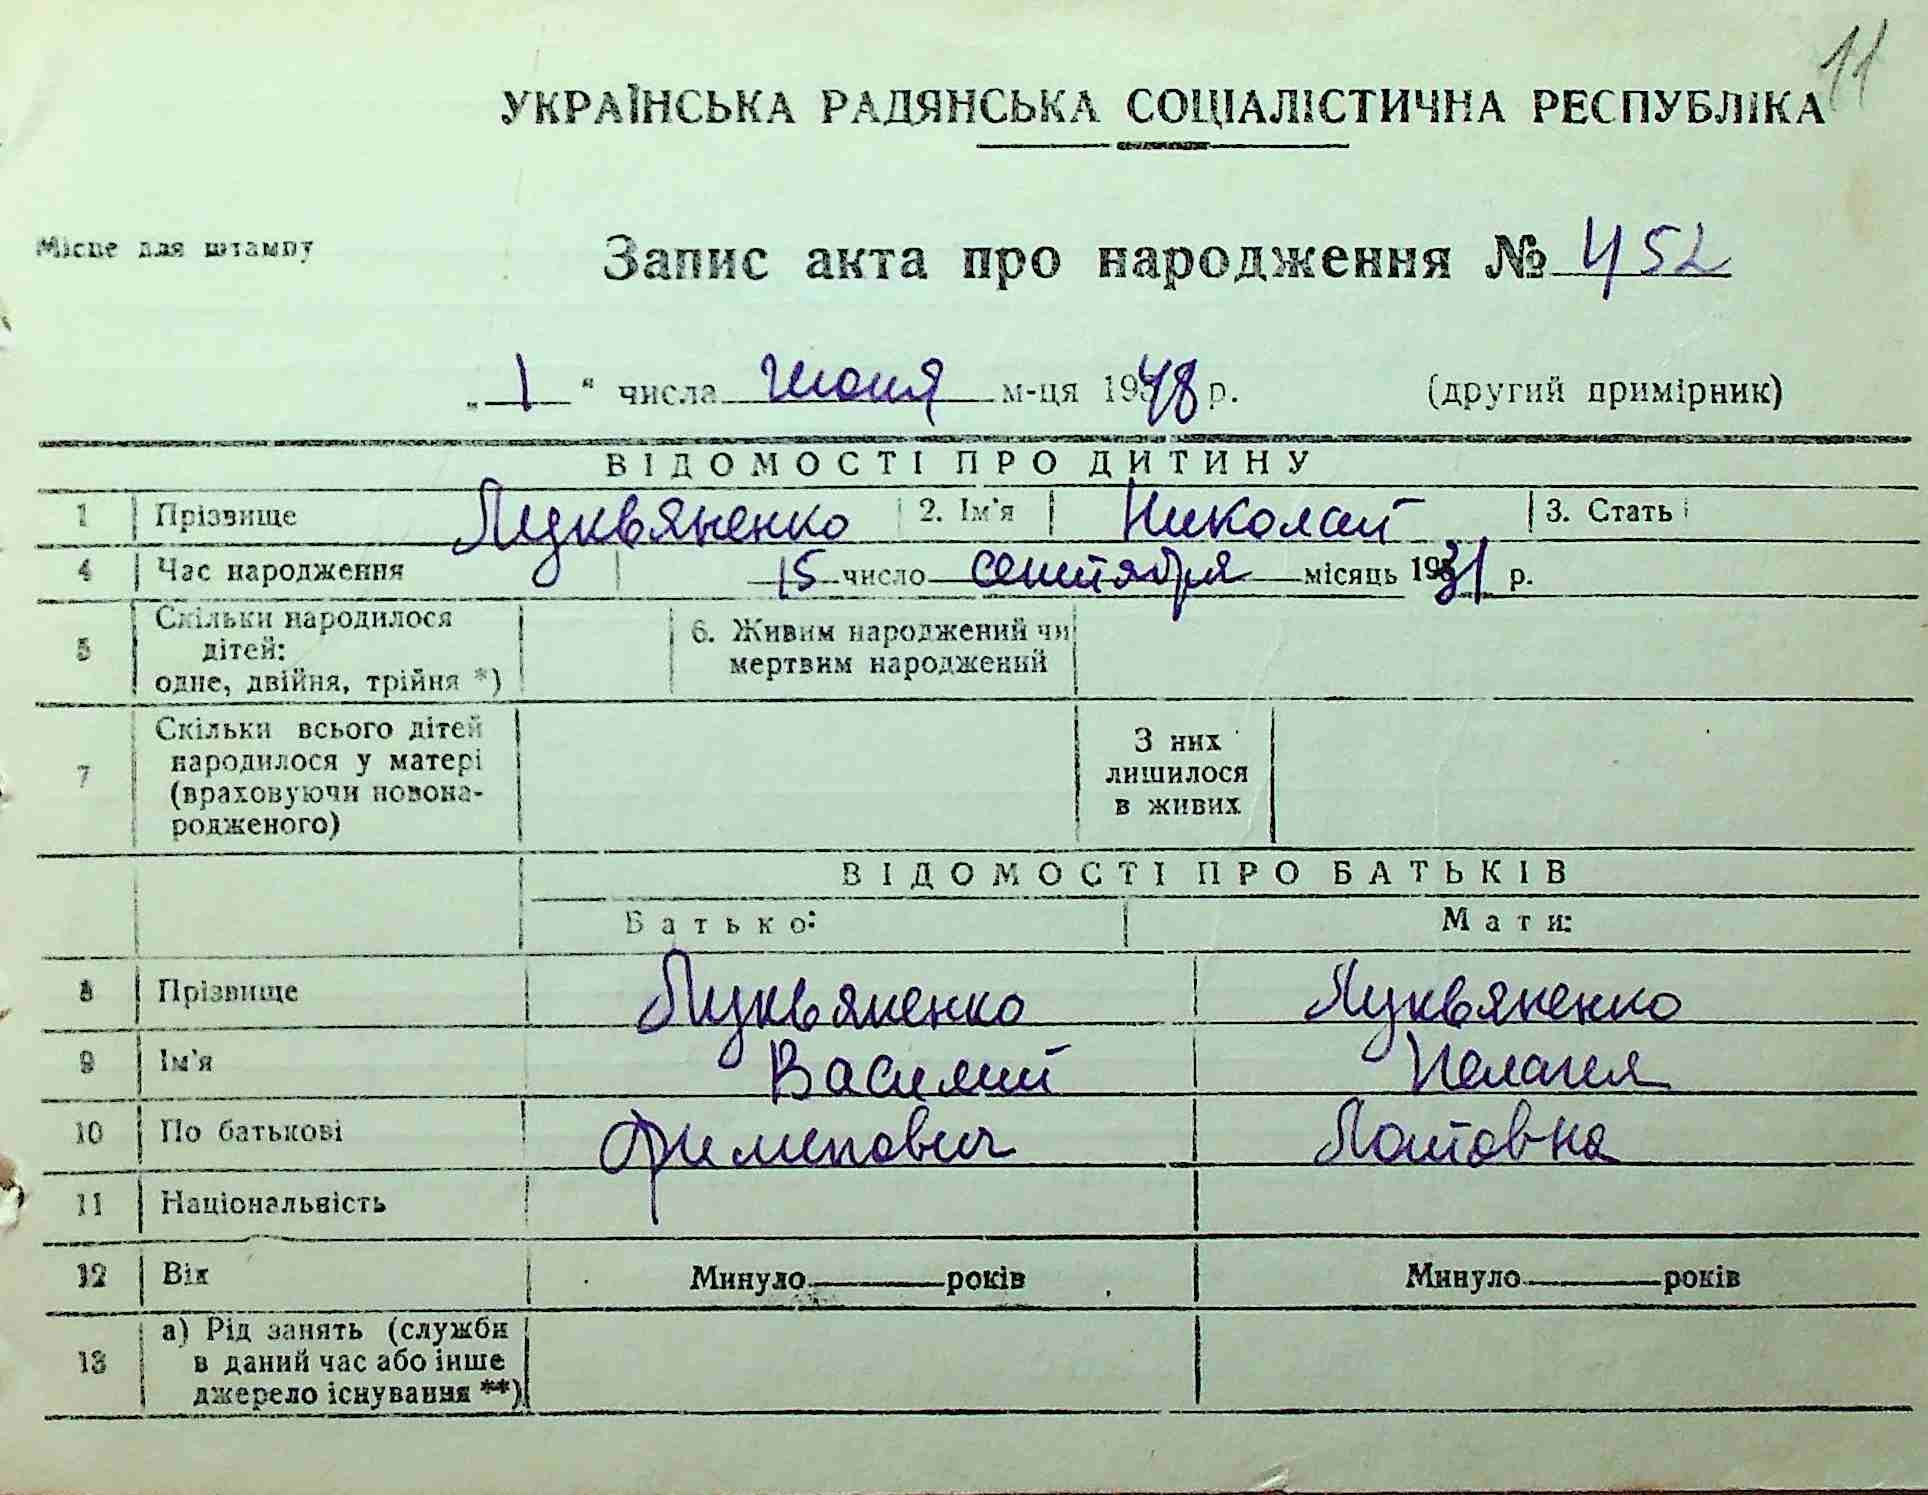 11
УКРАЇНСЬКА РАДЯНСЬКА СОЦІАЛІСТИЧНА РЕСПУБЛІКА
Місце для штампу
Запис акта про народження № 452
„ 1 “ числа июня м-ця 1948 р. (другий примірник)
ВІДОМОСТІ ПРО ДИТИНУ
1 Прізвище Луквяненко 2. Ім'я Николай 3. Стать
4 Час народження 15 число сентября місяць 1931 р.
5 Скільки народилося дітей: одне, двійня, трійня *) 6. Живим народжений чи мертвим народжений
7 Скільки всього дітей народилося у матері (враховуючи новонародженого) З них лишилося в живих
ВІДОМОСТІ ПРО БАТЬКІВ
Батько: Мати:
8 Прізвище Луквяненко Луквяненко
9 Ім'я Василий Пелагия
10 По батькові Филипович
11 Національність
12 Вік Минуло років Минуло років
13 а) Рід занять (служби в даний час або інше джерело існування **)